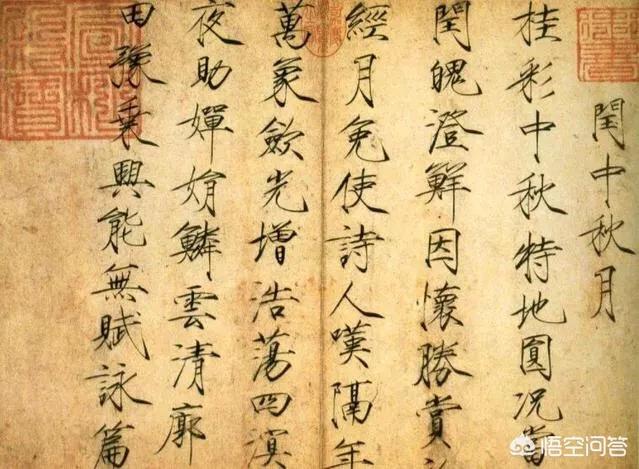 閏中秋月
桂彩中秋特地圓況當
閏魄澄鮮因懷勝賞
經月免使詩人嘆隔年
萬象歛光增浩蕩四溟
夜助嬋娟鱗雲清廓
田豫乘興能無賦詠篇
悟空问答